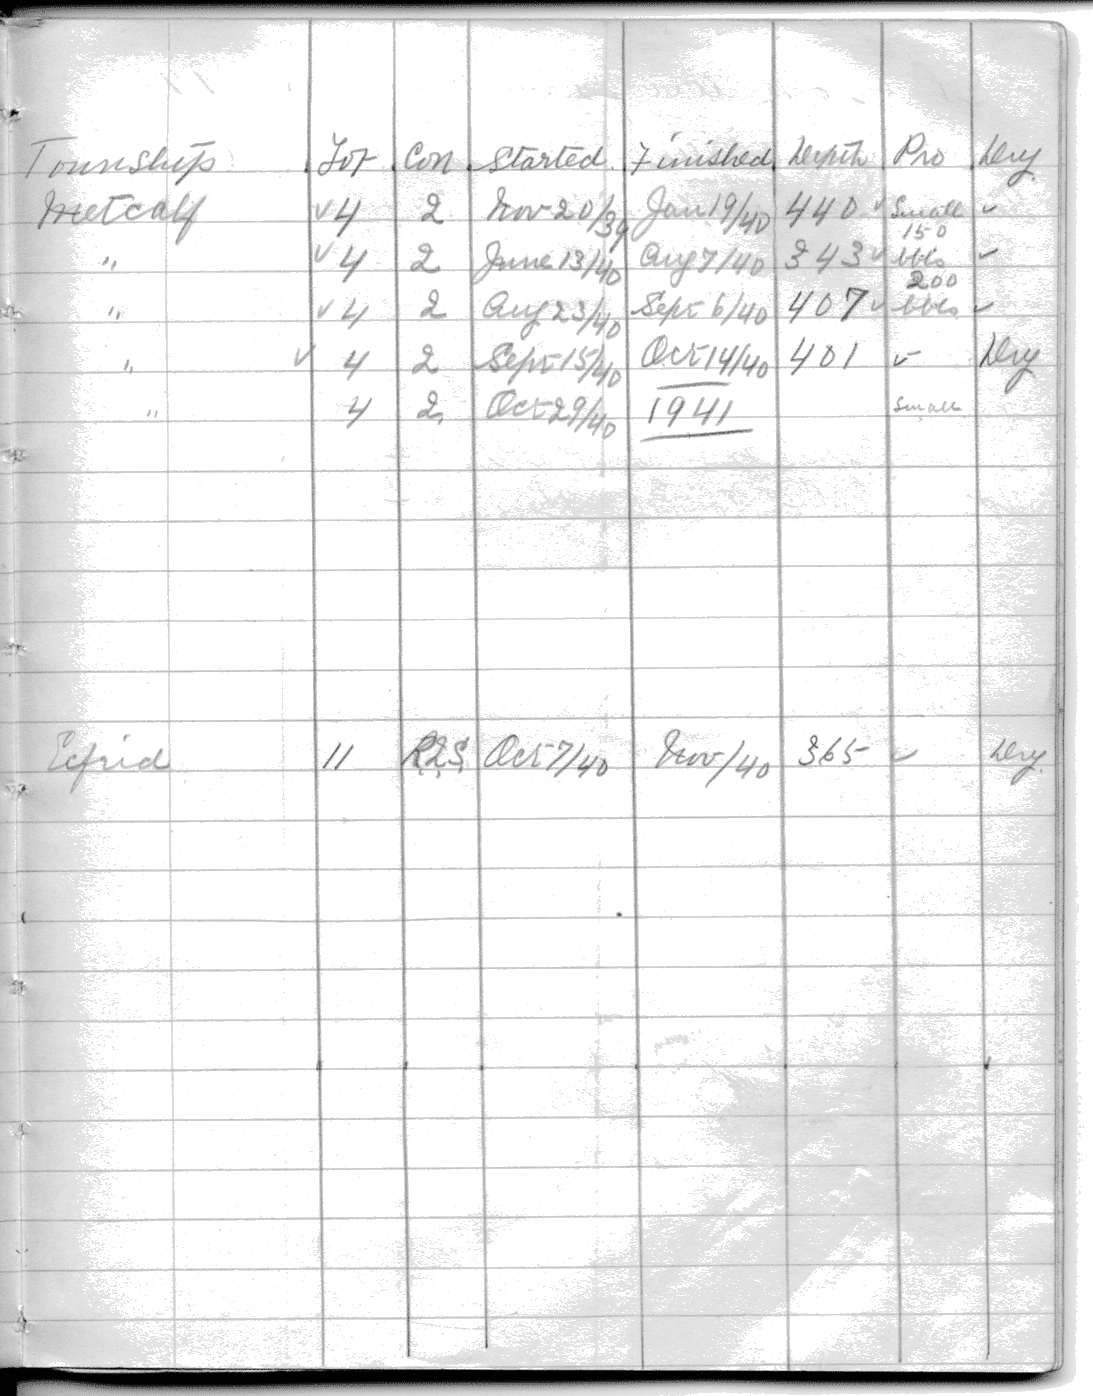 Township Lot Con Started Finished Depth Pro Dry
Metcalf ✓ 4 2 Nov 20/39 Jan 19/40 440 ✓ Small ✓
" ✓ 4 2 June 13/40 Aug 7/40 343 ✓ 150 bbls ✓
" ✓ 4 2 Aug 23/40 Sept 6/40 407 ✓ 200 bbls ✓
" ✓ 4 2 Sept 15/40 Oct 14/40 401 ✓ Dry
" 4 2 Oct 29/40 1941 Small
Ecfrid 11 R2S Oct 7/40 Nov/40 365 ✓ Dry